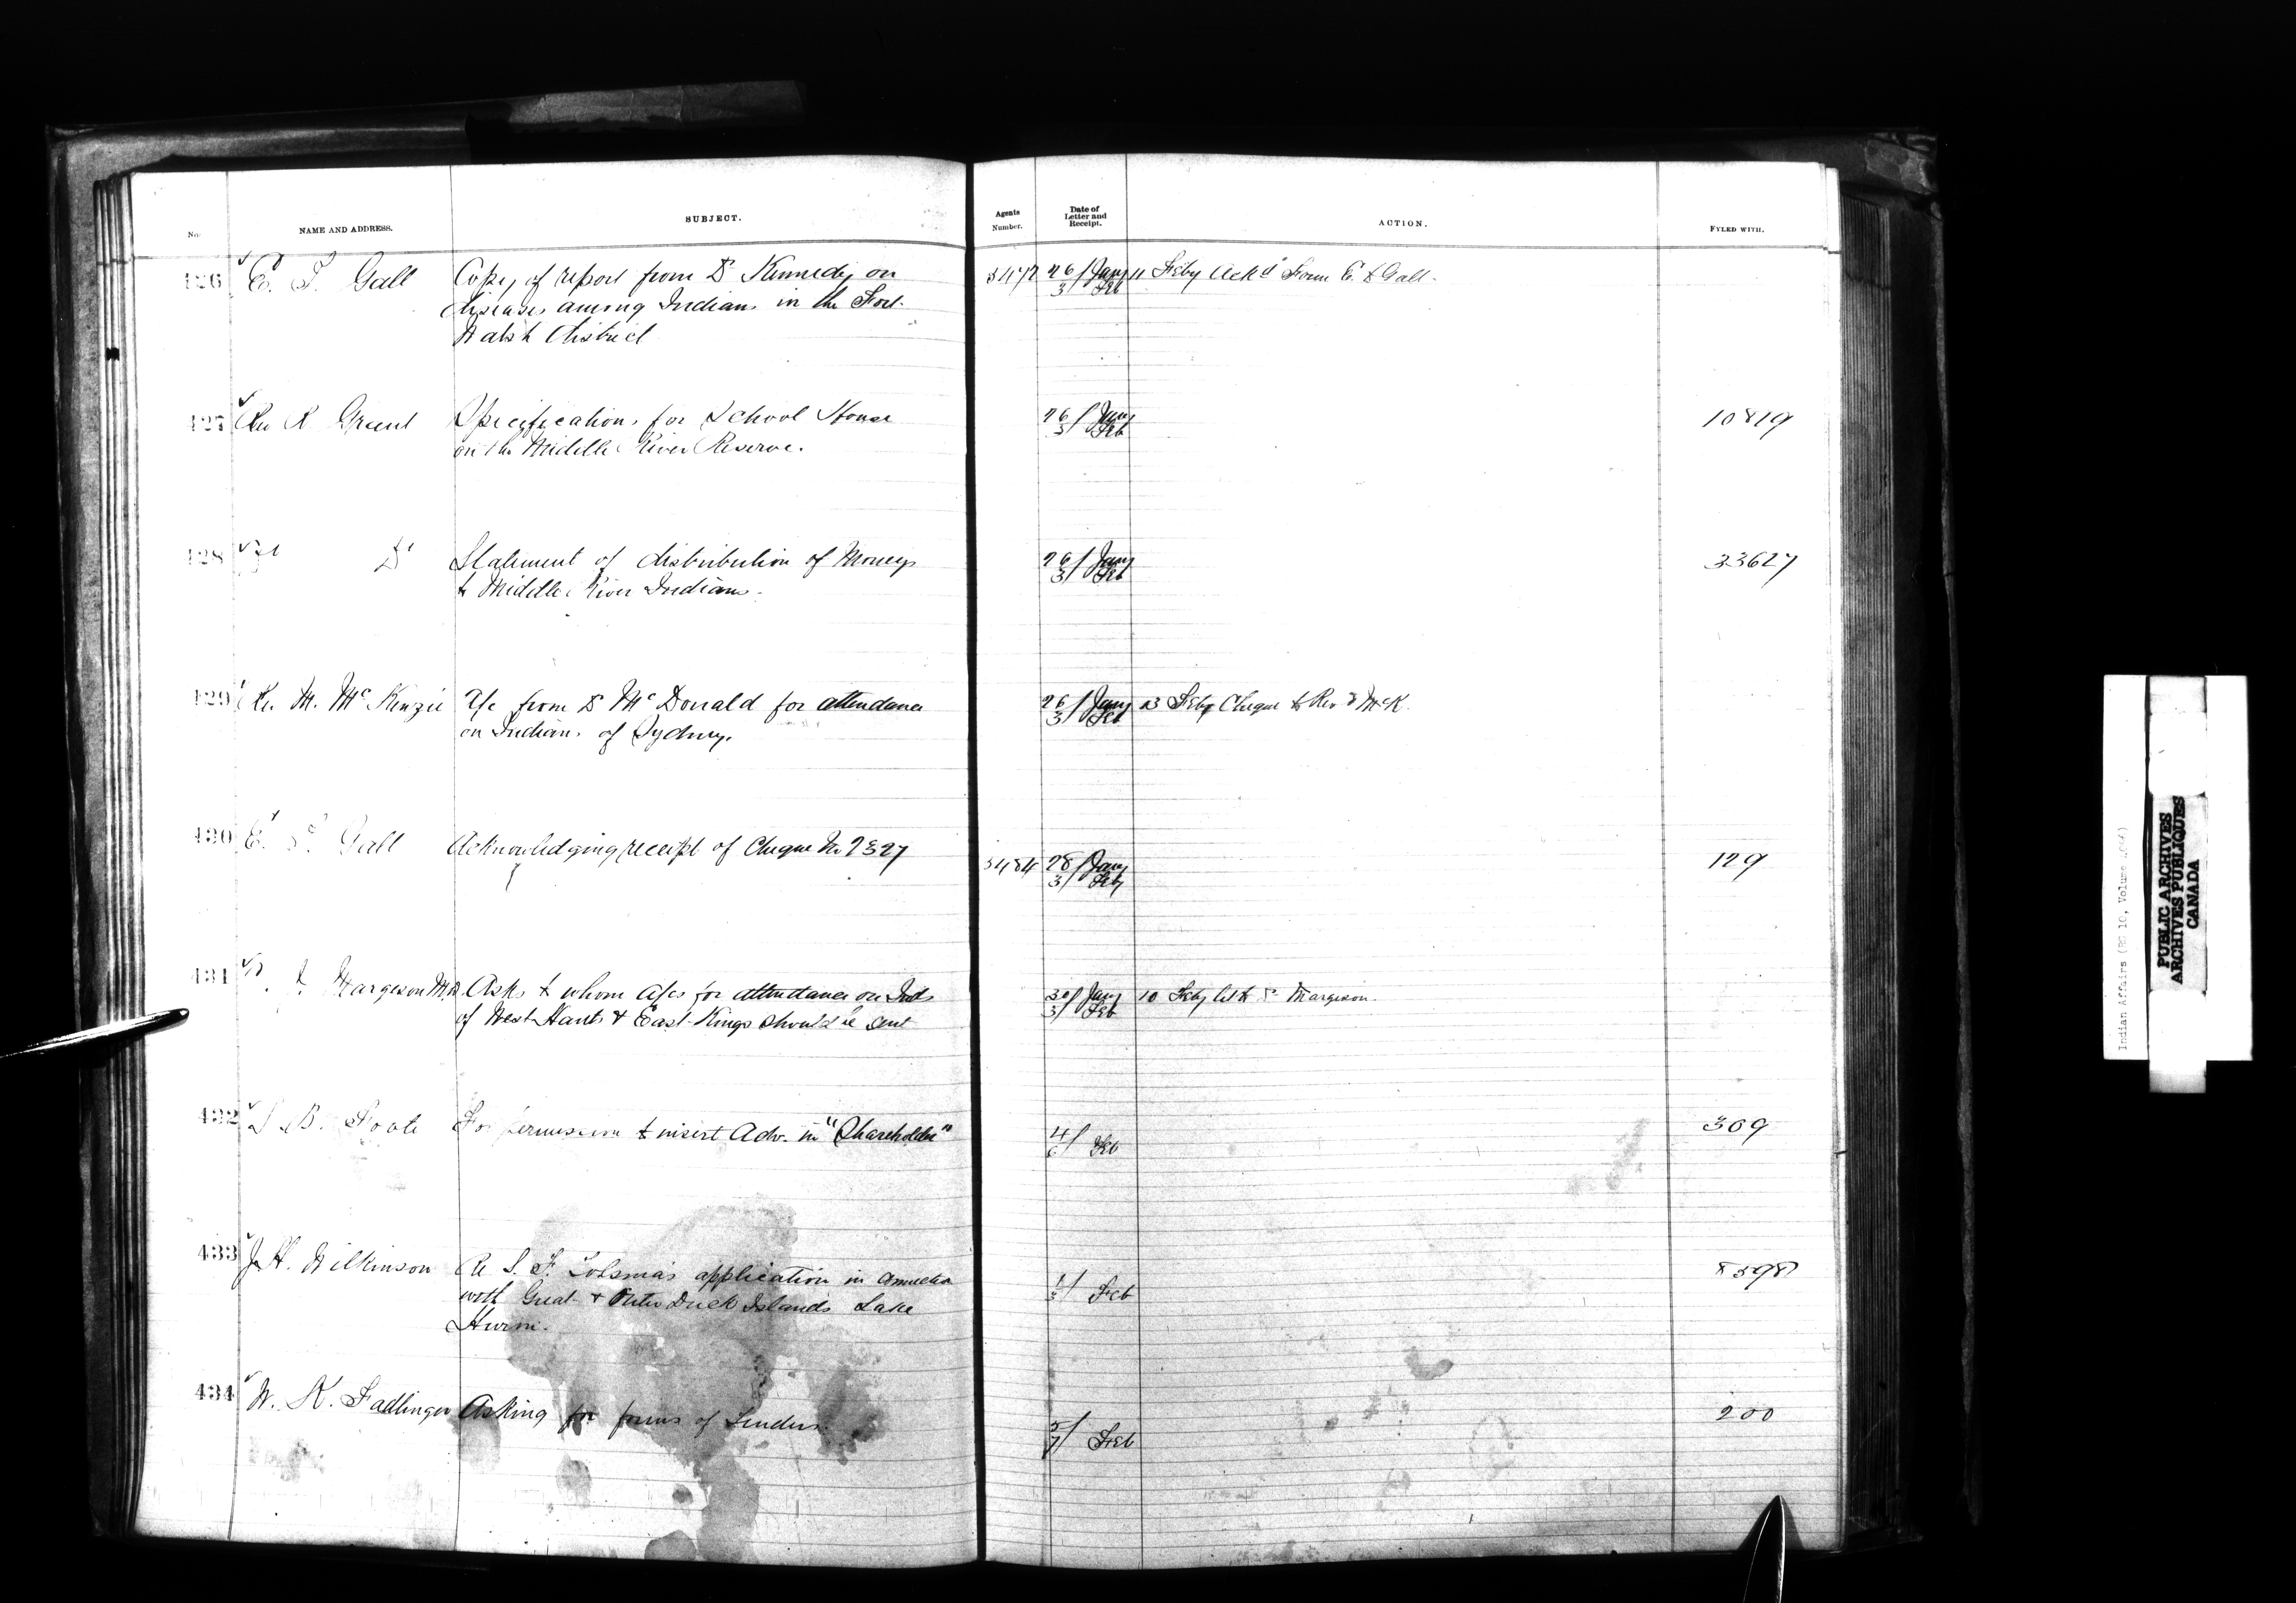 No.
NAME AND ADDRESS.
SUBJECT.
Agents Number.
Date of Letter and Receipt.
ACTION.
FYLED WITH.
426 E. T. Galt Copy of report from Dr Kennedy on 3472 26/3 Jany Feb 11 Feby Ackd Form E. T Galt.
diseases among Indians in the Fort
Walsh district
427 Rev R. Grant Specifications for School House 26/3 Jany Feb 10819
on the Middle River Reserve.
428 Do Statement of distribution of Moneys 26/3 Jany Feb 33627
to Middle River Indians.
429 Rev. M. McKenzie A/c from Dr McDonald for attendance 26/3 Jany Feb 23 Feby Cheque to Revd McK.
on Indians of Sydney.
430 E. T. Galt Acknowledging receipt of Cheque No 2327 3484 28/3 Jany Feby 129
431 Margeson M.D. Asks to whom A/cs for attendance on Inds 30/3 Jany Feb 10 Feby let to Dr Margeson.
of West Hants & East Kings should be sent
432 B. Foote For permission to insert Adv. in "Shareholder" 4/ Feb 309
433 J. H. Wilkinson Re S. F. application in connection Feb
with Great & Outer Duck Islands Lake
Huron.
434 W. K. Fadlinger Asking for forms of Tenders. 5/7 Feb 200
Indian Affairs (RG 10, Volume
PUBLIC ARCHIVES
ARCHIVES PUBLIQUES
CANADA